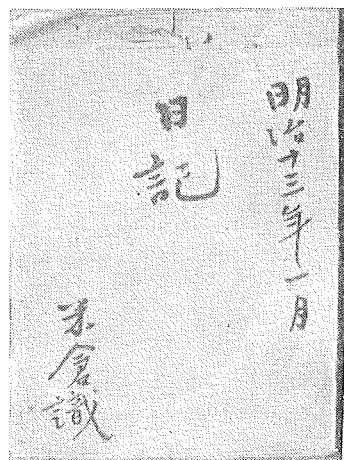 明治十三年一月
日記
米倉識